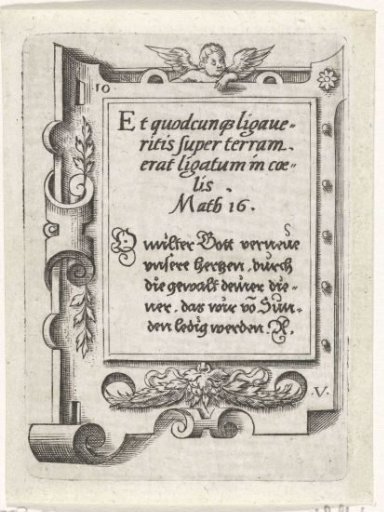 10
Et quodcunqꝫ ligaue-
ritis super terram.
erat ligatum in cœ-
lis.
Math 16.
O milter Gott verneue
vnsere hertzen, durch
die gewalt deiner die-
ner. das wir vō Sun-
den ledig werden. A.
.V.